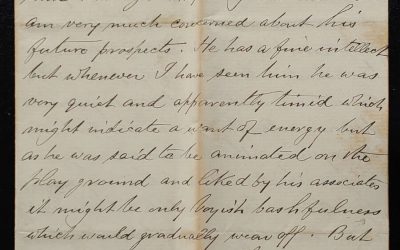 am very much concerned about his
future prospects. He has a fine intellect
but whenever I have seen him he was
very quiet and apparently timid which
might indicate a want of energy but
as he was said to be animated on the
play ground and liked by his associates
it might be only boyish bashfulness
which would gradually wear off. But